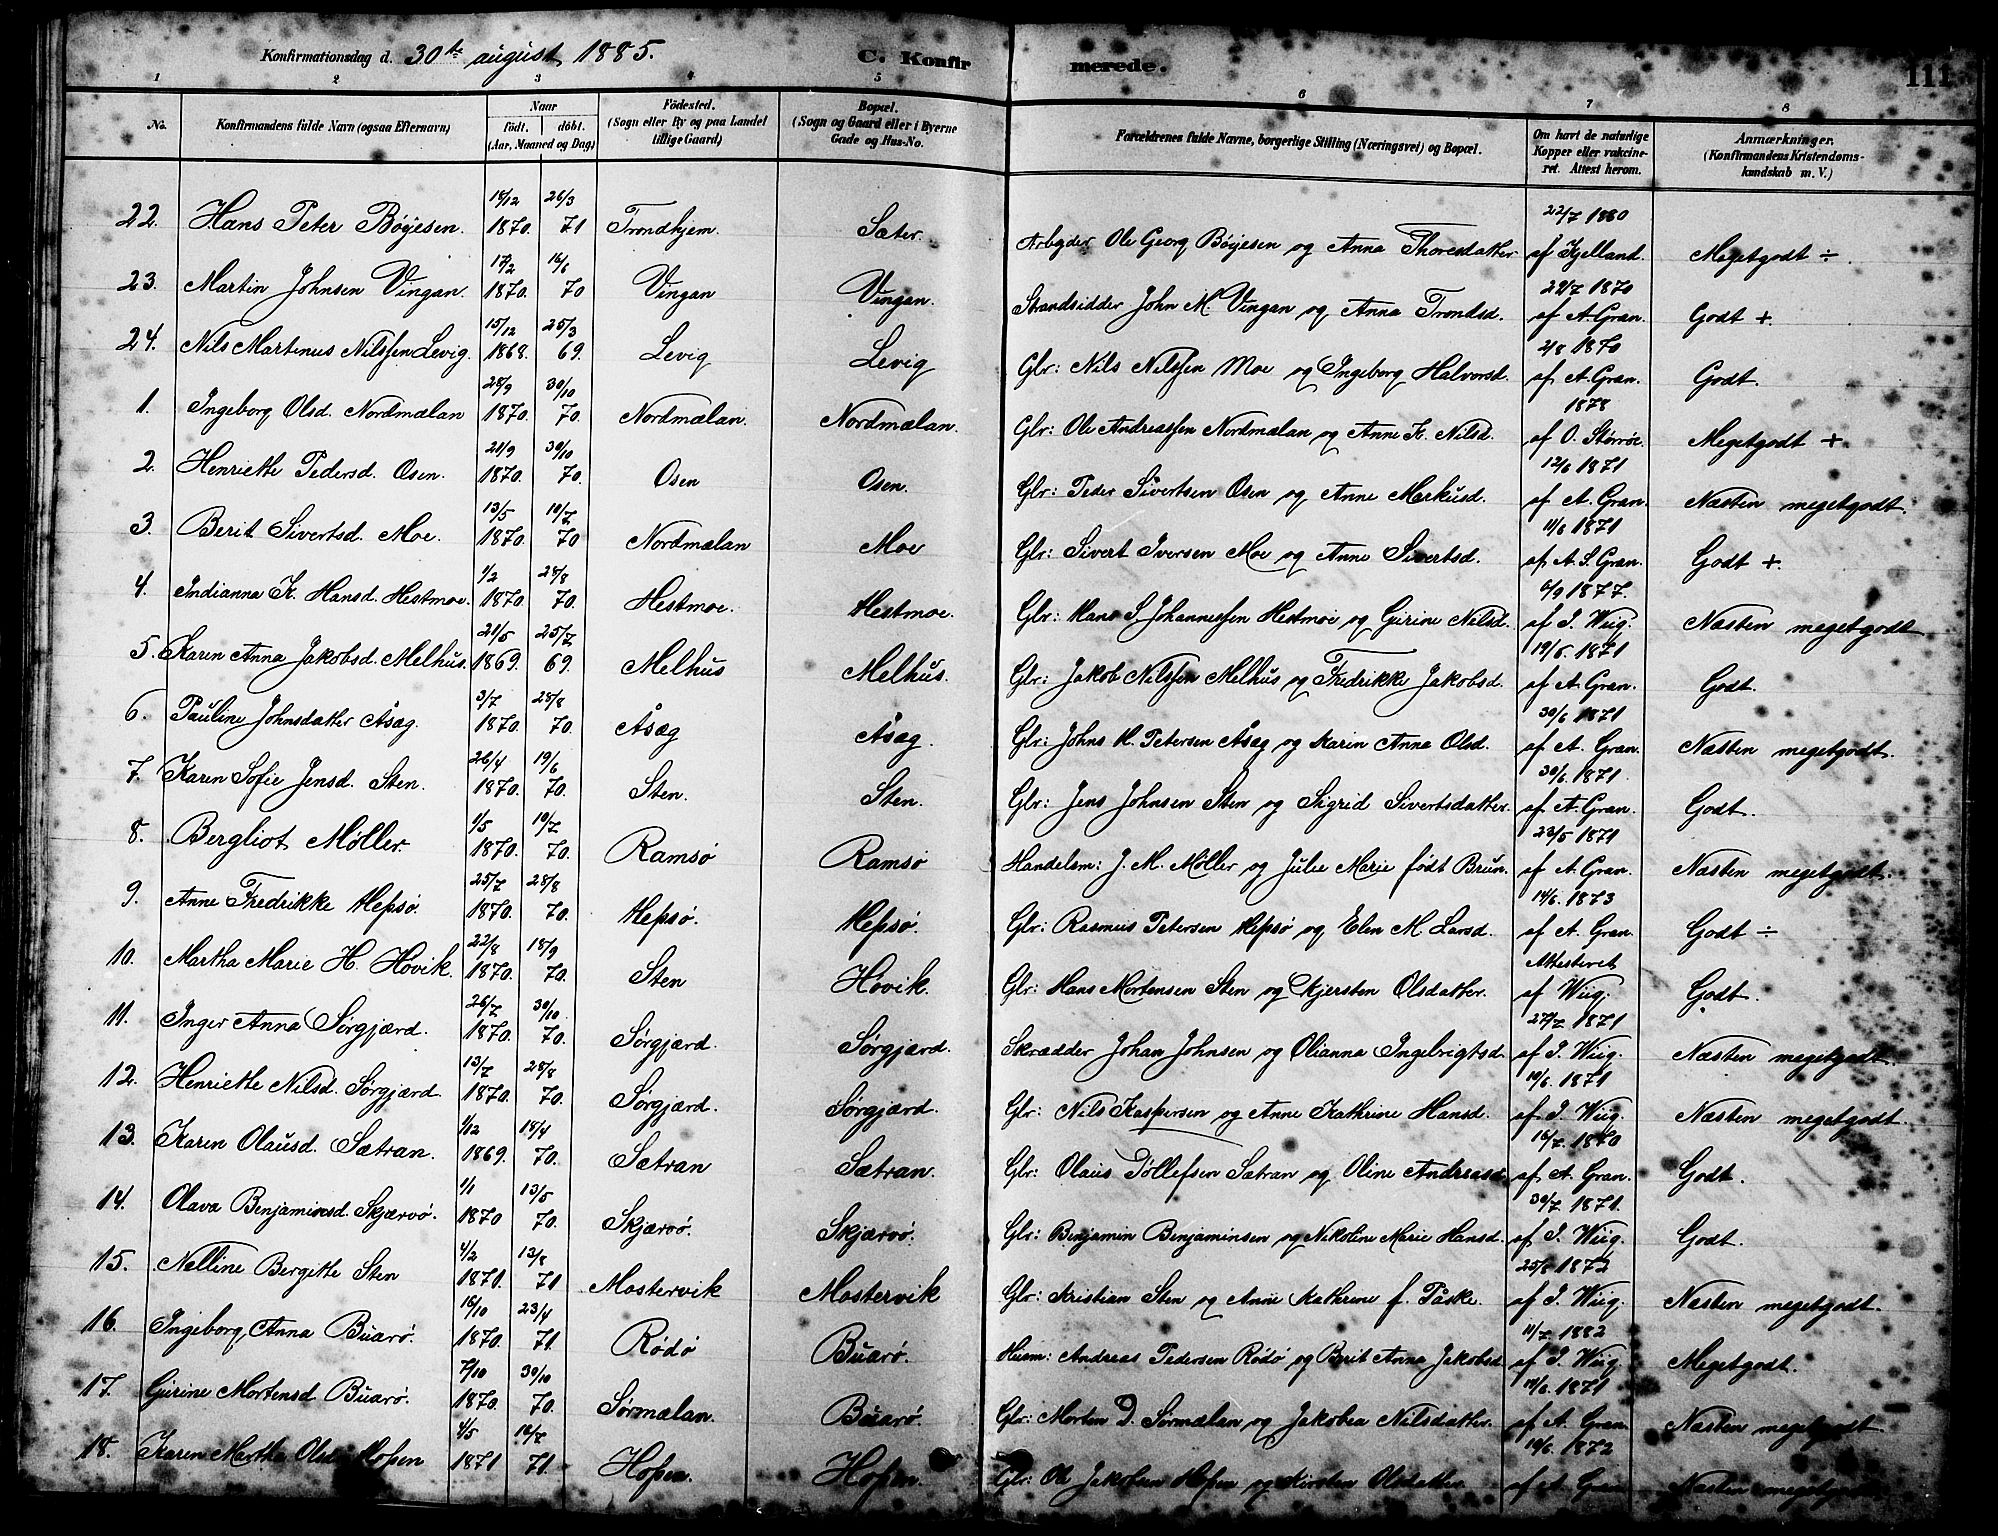 Konfirmationsdag d. 30te august 1885.
C. Konfir merede. 111
1 2 3 4 5 6 7 8
No. Konfirmandens fulde Navn (ogsaa Efternavn) Naar födt. döbt. (Aar, Maaned og Dag) Födested. (Sogn eller By og paa Landet tillige Gaard) Bopæl. (Sogn og Gaard eller i Byerne Gade og Hus-No. Forældrenes fulde Navne, borgerlige Stilling (Næringsvei) og Bopæl. Om havt de naturlige Kopper eller vakcineret. Attest herom. Anmærkninger. (Konfirmandens Kristendomskundskab m. V.)
22. Hans Peter Böyesen. 1870. 26/3 71 Trondhjem. Sæter. Arbejder Ole Georg Böyesen og Anna Thoresdatter 22/7 1880 af Kjelland. Megetgodt ÷
23. Martin Johnsen Vingan. 17/2 1870. 16/6 70 Vingan Vingan. Strandsidder John M. Vingan og Anna Trondsd. 22/7 1870 af A. Gran. Godt +
24. Nils Martinus Nilssen Levig. 15/12 1868. 25/3 69. Levig Levig Glr: Nils Nilssen Moe og Ingeborg Halvorsd. 2/8 1870 af A. Gran. Godt.
1. Ingeborg Olsd. Nordmælan 28/9 1870. 30/10 70. Nordmælan. Nordmælan. Glr: Ole Andreassen Nordmælan og Anne K. Nilsd. 1878 af O. Störröe. Megetgodt +
2. Henriette Pedersd. Osen. 21/9 1870. 30/10 70. Osen Osen. Glr: Peder Sivertsen Osen og Anne Markusd. 12/6 1871 af A. Gran. Næsten megetgodt.
3. Berit Sivertsd. Moe. 13/5 1870. 10/7 70 Nordmælan Moe Glr: Sivert Iversen Moe og Anne Sivertsd. 11/6 1871 af A. S. Gran. Godt +
4. Indianna K. Hansd. Hestmoe. 1/2 1870. 28/8 70. Hestmoe. Hestmoe. Glr: Hans S. Johannessen Hestmoe og Gurine Nilsd. 6/9 1877. af I. Wiig. Næsten megetgodt
5. Karen Anna Jakobsd. Melhus. 21/5 1869. 25/7 69. Melhus Melhus. Glr: Jakob Nilssen Melhus og Fredrikke Jakobsd. 19/6. 1871 af A. Gran. Godt.
6. Pauline Johnsdatter Åsæg. 3/7 1870. 28/8 70. Åsæg Åsæg. Glr: Johns H. Petersen Åsæg og Karen Anna Olsd. 30/6 1871 af A. Gran. Næsten megetgodt.
7. Karen Sofie Jensd. Sten. 26/4 1870. 19/6 70. Sten. Sten. Glr: Jens Johnsen Sten og Sigrid Sivertsdatter. 30/6. 1871. af A. Gran. Godt.
8. Bergliot Møller. 1/5 1870. 10/7 70. Ramsö Ramsö Handelsm: J. M. Møller og Julie Marie født Brun. 23/5 1871 af A. Gran. Næsten megetgodt.
9. Anne Fredrikke Hepsö. 25/7 1870. 28/8 70. Hepsö. Hepsö. Glr: Rasmus Petersen Hepsö og Elen M. Larsd. 14/6. 1873 af A. Gran. Godt ÷
10. Martha Marie H. Hovik. 22/8 1870. 18/9 70. Sten Hovik. Glr: Hans Mortensen Sten og Kjersten Olsdatter. Attesteret af Wiig. Godt.
11. Inger Anna Sörgjærd. 26/7 1870. 30/10 70. Sörgjærd. Sörgjærd. Skrædder Johan Johnsen og Olianna Ingebrigtsd. 27/7 1871 af I. Wiig. Næsten megetgodt.
12. Henriette Nilsd. Sörgjærd. 13/7 1870. 28/8 70. Sörgjærd. Sörgjærd. Glr: Nils Kaspersen og Anne Kathrine Hansd. 10/6. 1871 af I. Wiig. Næsten megetgodt.
13. Karen Olausd. Sætran. 1/12 1869. 18/4 70. Sætran Sætran. Glr: Olaus Tollefsen Sætran og Oline Andreasd. 16/7. 1870 af A. Gran. Godt.
14. Olava Benjaminsd. Skjærvö. 1/1 1870 13/5 70. Skjærvö. Skjærvö. Glr: Benjamin Benjaminsen og Nikoline Marie Hansd. 30/7 1871. af I. Wiig. Godt.
15. Nelline Bergitte Sten 4/2 1870. 13/8 71 Mostervik Mostervik Glr: Kristian Sten og Anne Kathrine f. Påske. 25/6 1872 af I. Wiig. Næsten megetgodt.
16. Ingeborg Anna Buarö. 16/10 1870. 23/4 71. Rödö Buarö. Husm: Andreas Pedersen Rödö og Brit Anna Jakobsd. 11/7. 1882 af I. Wiig. Megetgodt.
17. Gurine Mortensd. Buarö. 7/10 1870. 30/10 70. Sörmælan. Buarö. Glr: Morten D. Sörmælan og Jakobea Nilsdatter. 14/6. 1871 af A. Gran. Næsten megetgodt
18. Karen Martha Hopen 4/5 1871 16/7 71. Hopen. Hopen. Glr: Ole Jakobsen Hopen og Kirsten Olsdatter 19/6. 1872 af A. Gran Næsten megetgodt